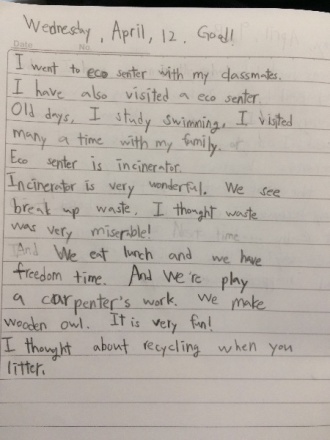 Wednesday, April, 12. Good!
Date No.
I went to eco senter with my classmates.
I have also visited a eco senter
Old days, I study swimming, I visited
many a time with my family.
Eco senter is incinerator.
Incinerator is very wonderful. We see
break up waste. I thought waste
was very miserable!
And We eat lunch and we have
freedom time. And We're play
a carpenter's work. We make
wooden owl. It is very fun!
I thought about recycling when you
litter.